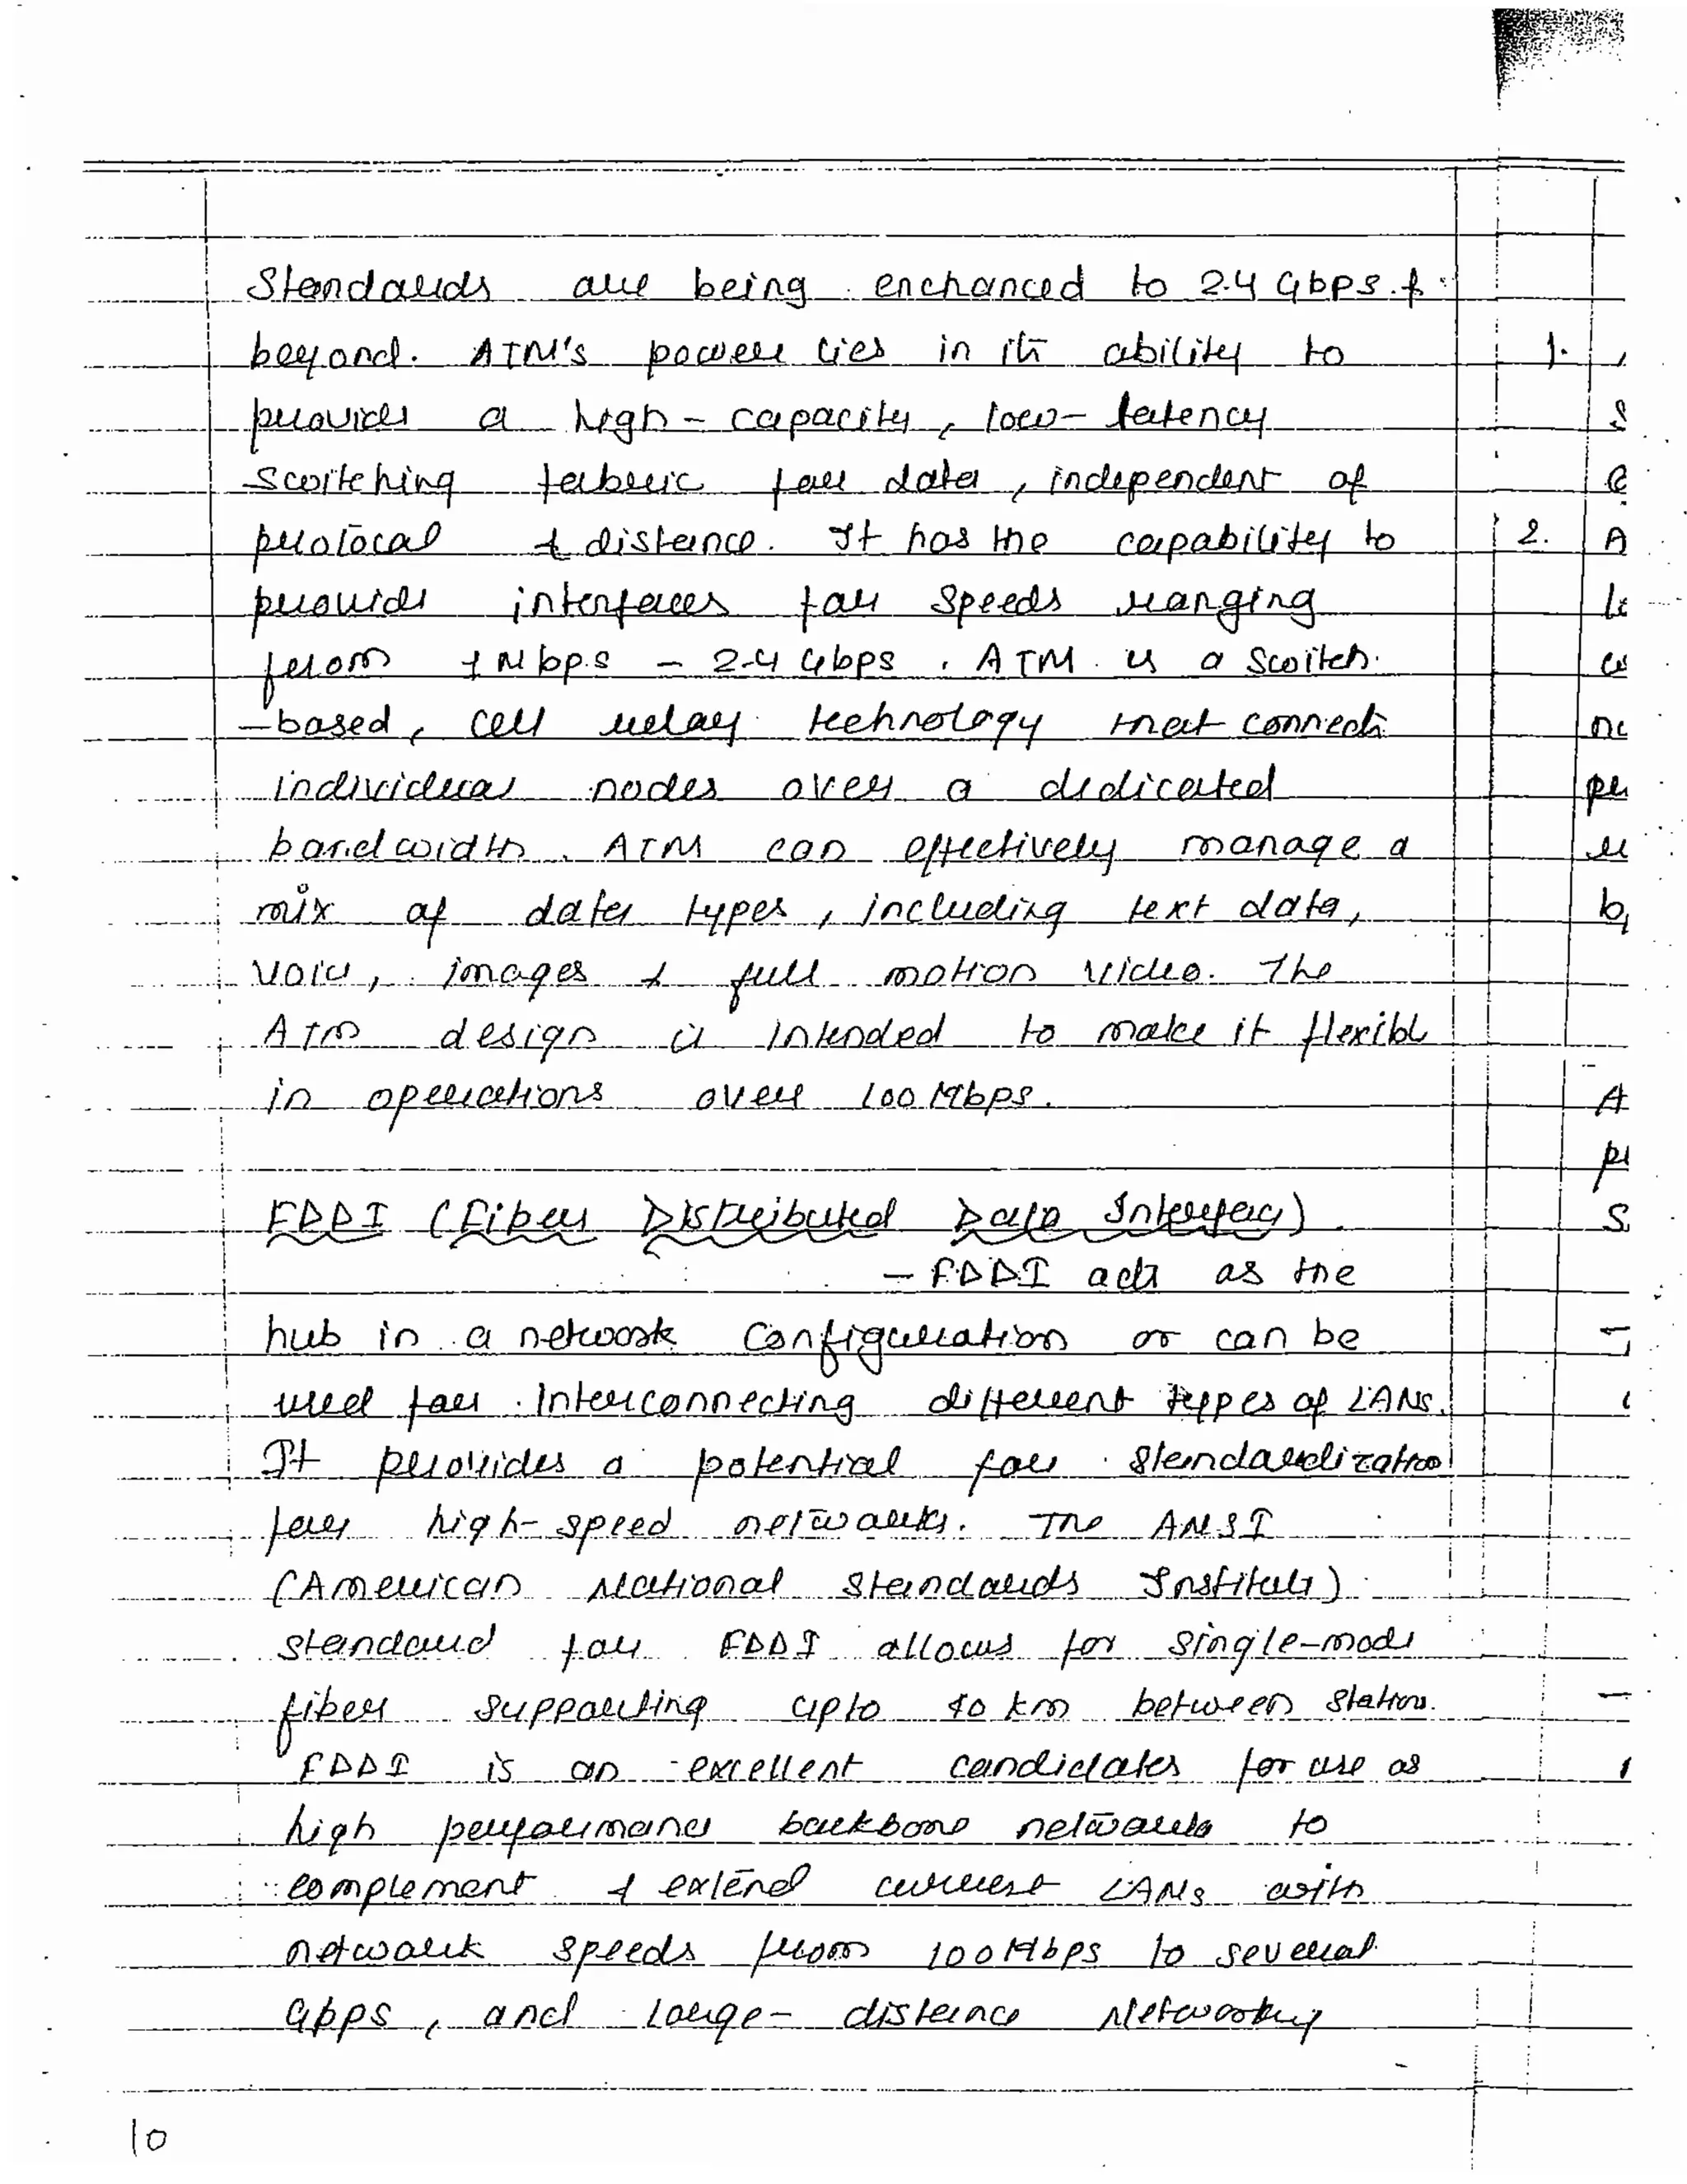 Standards are being enchanced to 2.4 Gbps &
beyond. ATM's power lies in its ability to
provides a high - capacity, low - latency
switching fabric for data, independent of
protocal & distance. It has the capability to
provides interfaces for speeds ranging
from 1 Mbps - 2.4 Gbps. ATM is a switch
-based, cell relay technology that connects
individual nodes over a dedicated
bandwidth. ATM can effectively manage a
mix of data types, including text data,
voice, images & full motion video. The
ATM design is intended to make it flexible
in operations over 100 Mbps.
FDDI (Fiber Distributed Data Interface)
- FDDI acts as the
hub in a network configuration or can be
used for interconnecting different types of LANs.
It provides a potential for standardization
for high-speed networks. The ANSI
(American National Standards Institute)
standard for FDDI allows for single-mode
fiber supporting upto 40 km between stations.
FDDI is an excellent candidates for use as
high performance backbone networks to
complement & extend current LANs with
network speeds from 100 Mbps to several
Gbps, and large - distance Networking
10
1.
2.